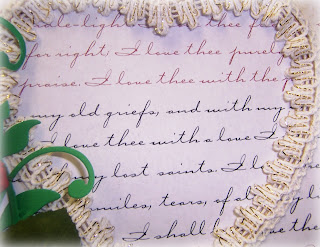 le-light. I love thee f
for right, I love thee purel
praise. I love thee with the
my old griefs, and with my
I love thee with a love I
my lost saints. I lo
smiles, tears, of al my l
I shall love thee